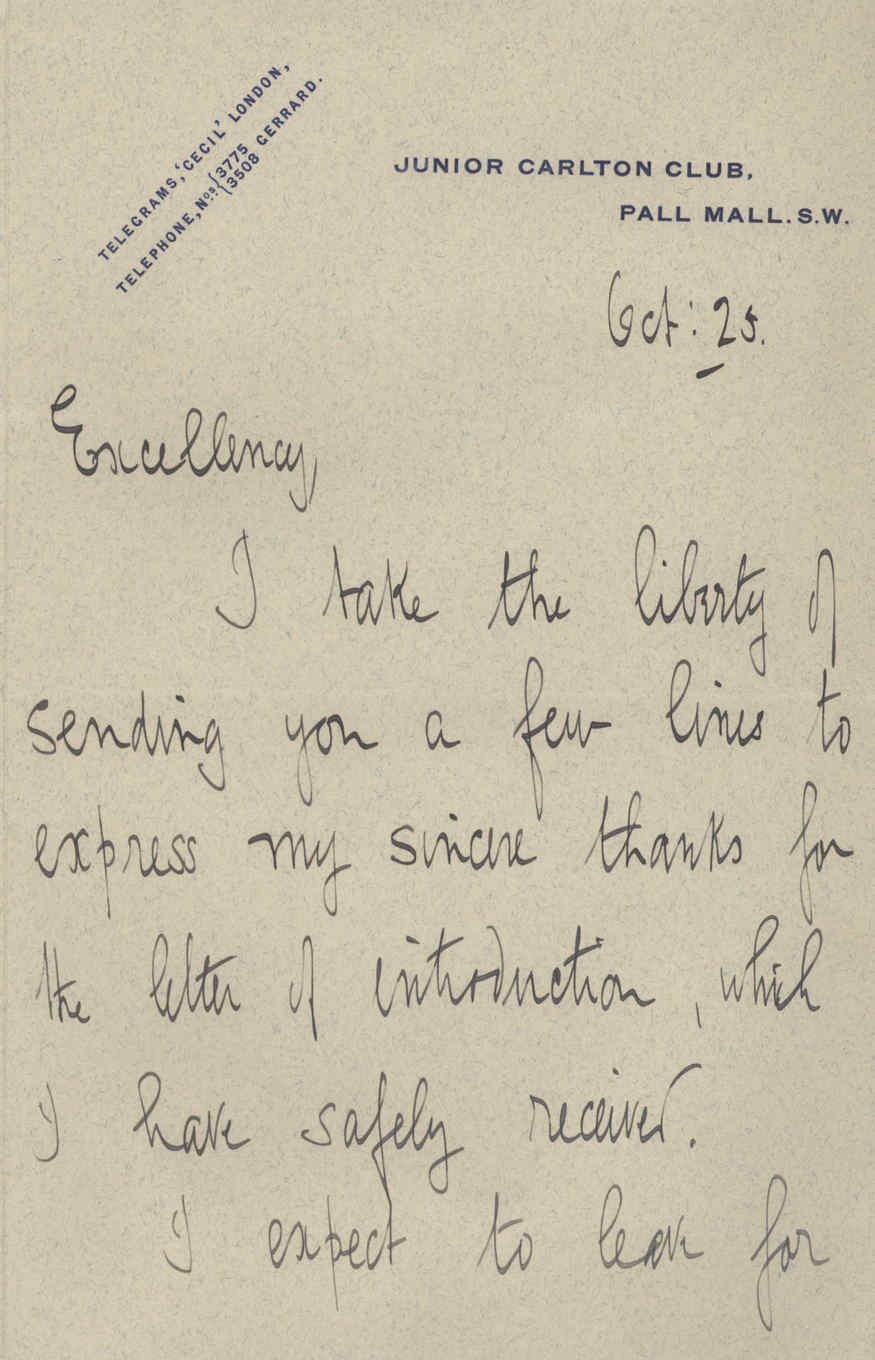 TELEGRAMS, 'CECIL' LONDON,
TELEPHONE, Nos. {3775
{3508 GERRARD.
JUNIOR CARLTON CLUB,
PALL MALL. S.W.
Oct: 25.
Excellency,
I take the liberty of
sending you a few lines to
express my sincere thanks for
the letter of introduction, which
I have safely received.
I expect to leave for